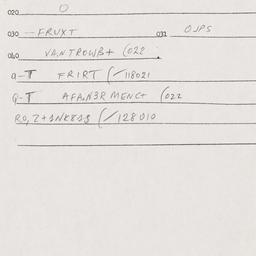 020 O
030 --FRUXT 031 OJPS
040 VANTROWB+ (022.
a-T FRIRT (/118021
Q-T AFA,N3R MENC+ (022
RO,Z+$NK8$$ (/128010